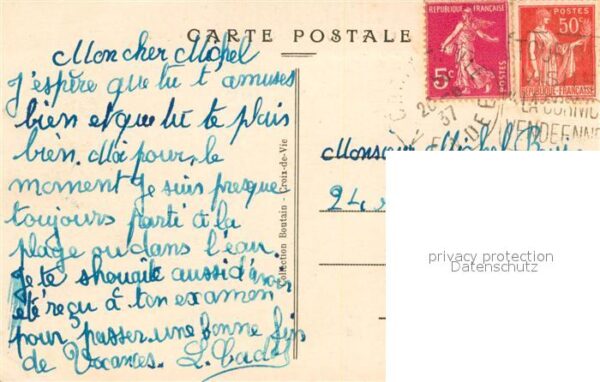 CARTE POSTALE
Mon cher Michel
J'espère que tu t amuses
bien et que tu te plais
bien. Moi pour le
moment Je suis presque
toujours parti à la
plage ou dans l'eau.
Je te shouaite aussi d'avoir
été reçu à ton examen
pour passer une bonne fin
de Vacances. L. Cadet
Collection Boutain - Croix-de-Vie
RÉPUBLIQUE FRANÇAISE
5c
POSTES
POSTES
50c
RÉPUBLIQUE FRANÇAISE
37
LA CORNIC
VENDEENNE
Monsieur Michel
24,
privacy protection
Datenschutz